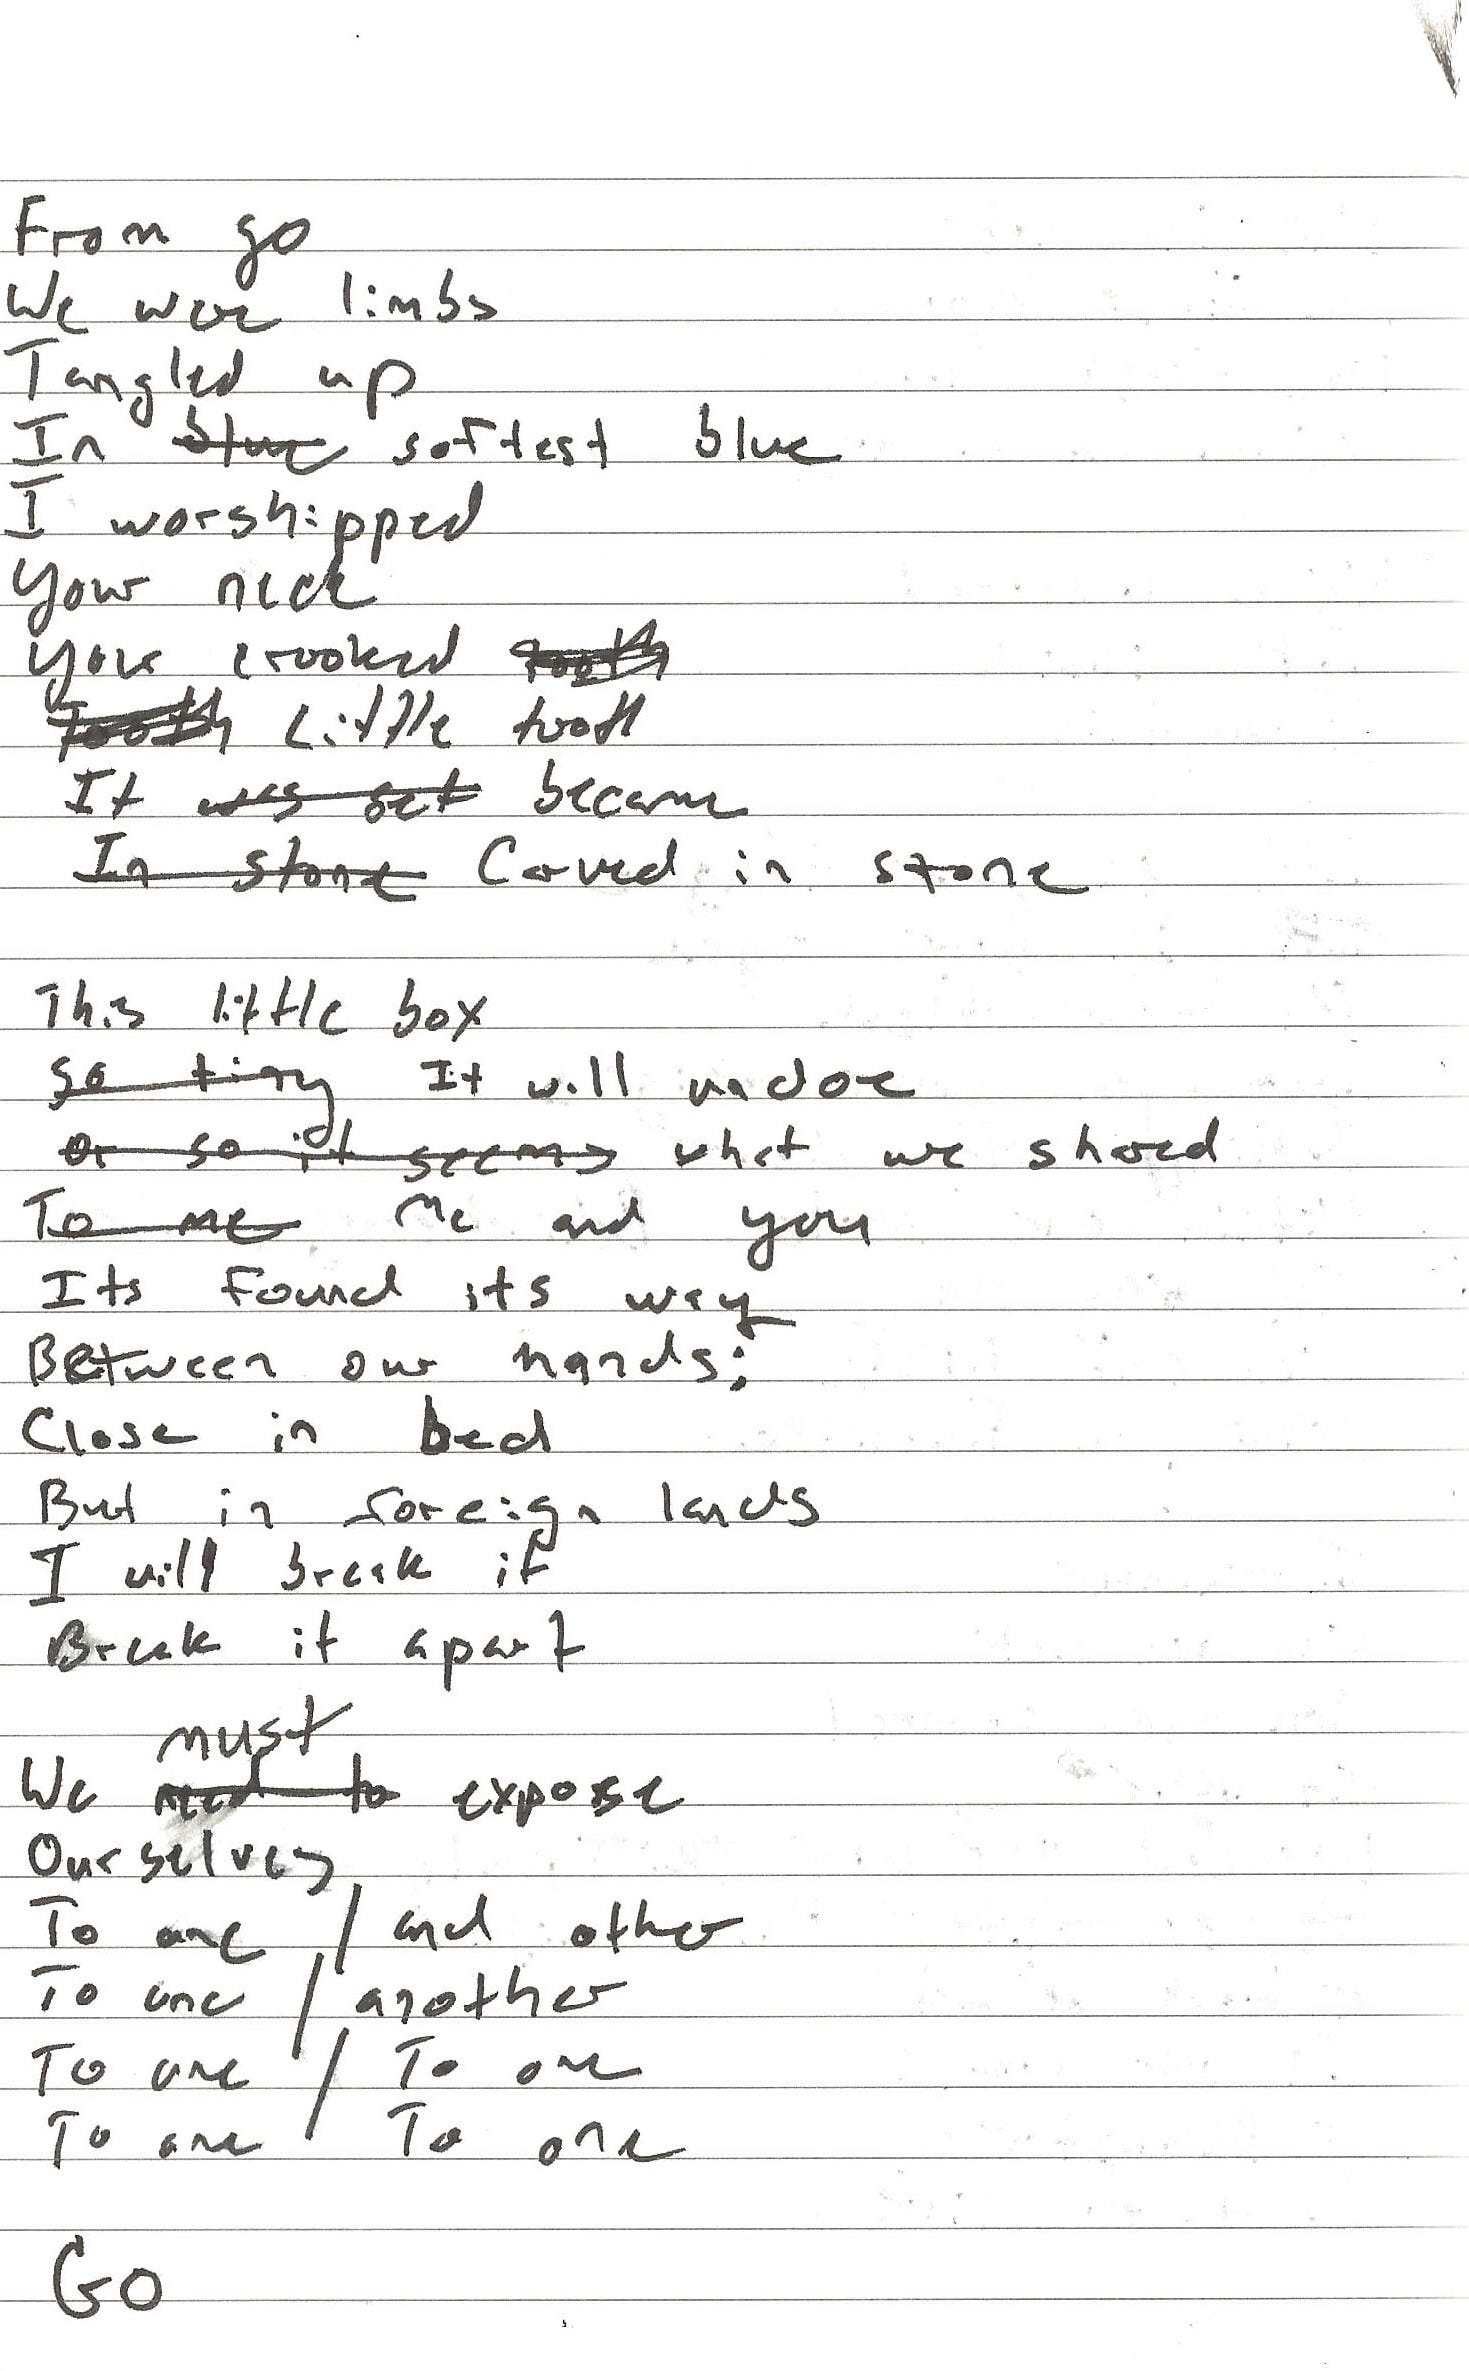 From go
We were limbs
Tangled up
In ~~blue~~ softest blue
I worshipped
Your neck
Your crooked ~~tooth~~
~~Tooth~~ Little tooth
It ~~was set~~ became
~~In stone~~ Carved in stone
This little box
~~so tiny~~ It will undoe
~~Or so it seems~~ what we shared
~~To me~~ Me and you
Its found its way
Between our hands;
Close in bed
But in foreign lands
I will break it
Break it apart
must
We ~~need to~~ expose
Ourselves
To one / and other
To one / another
To one / To one
To one / To one
GO